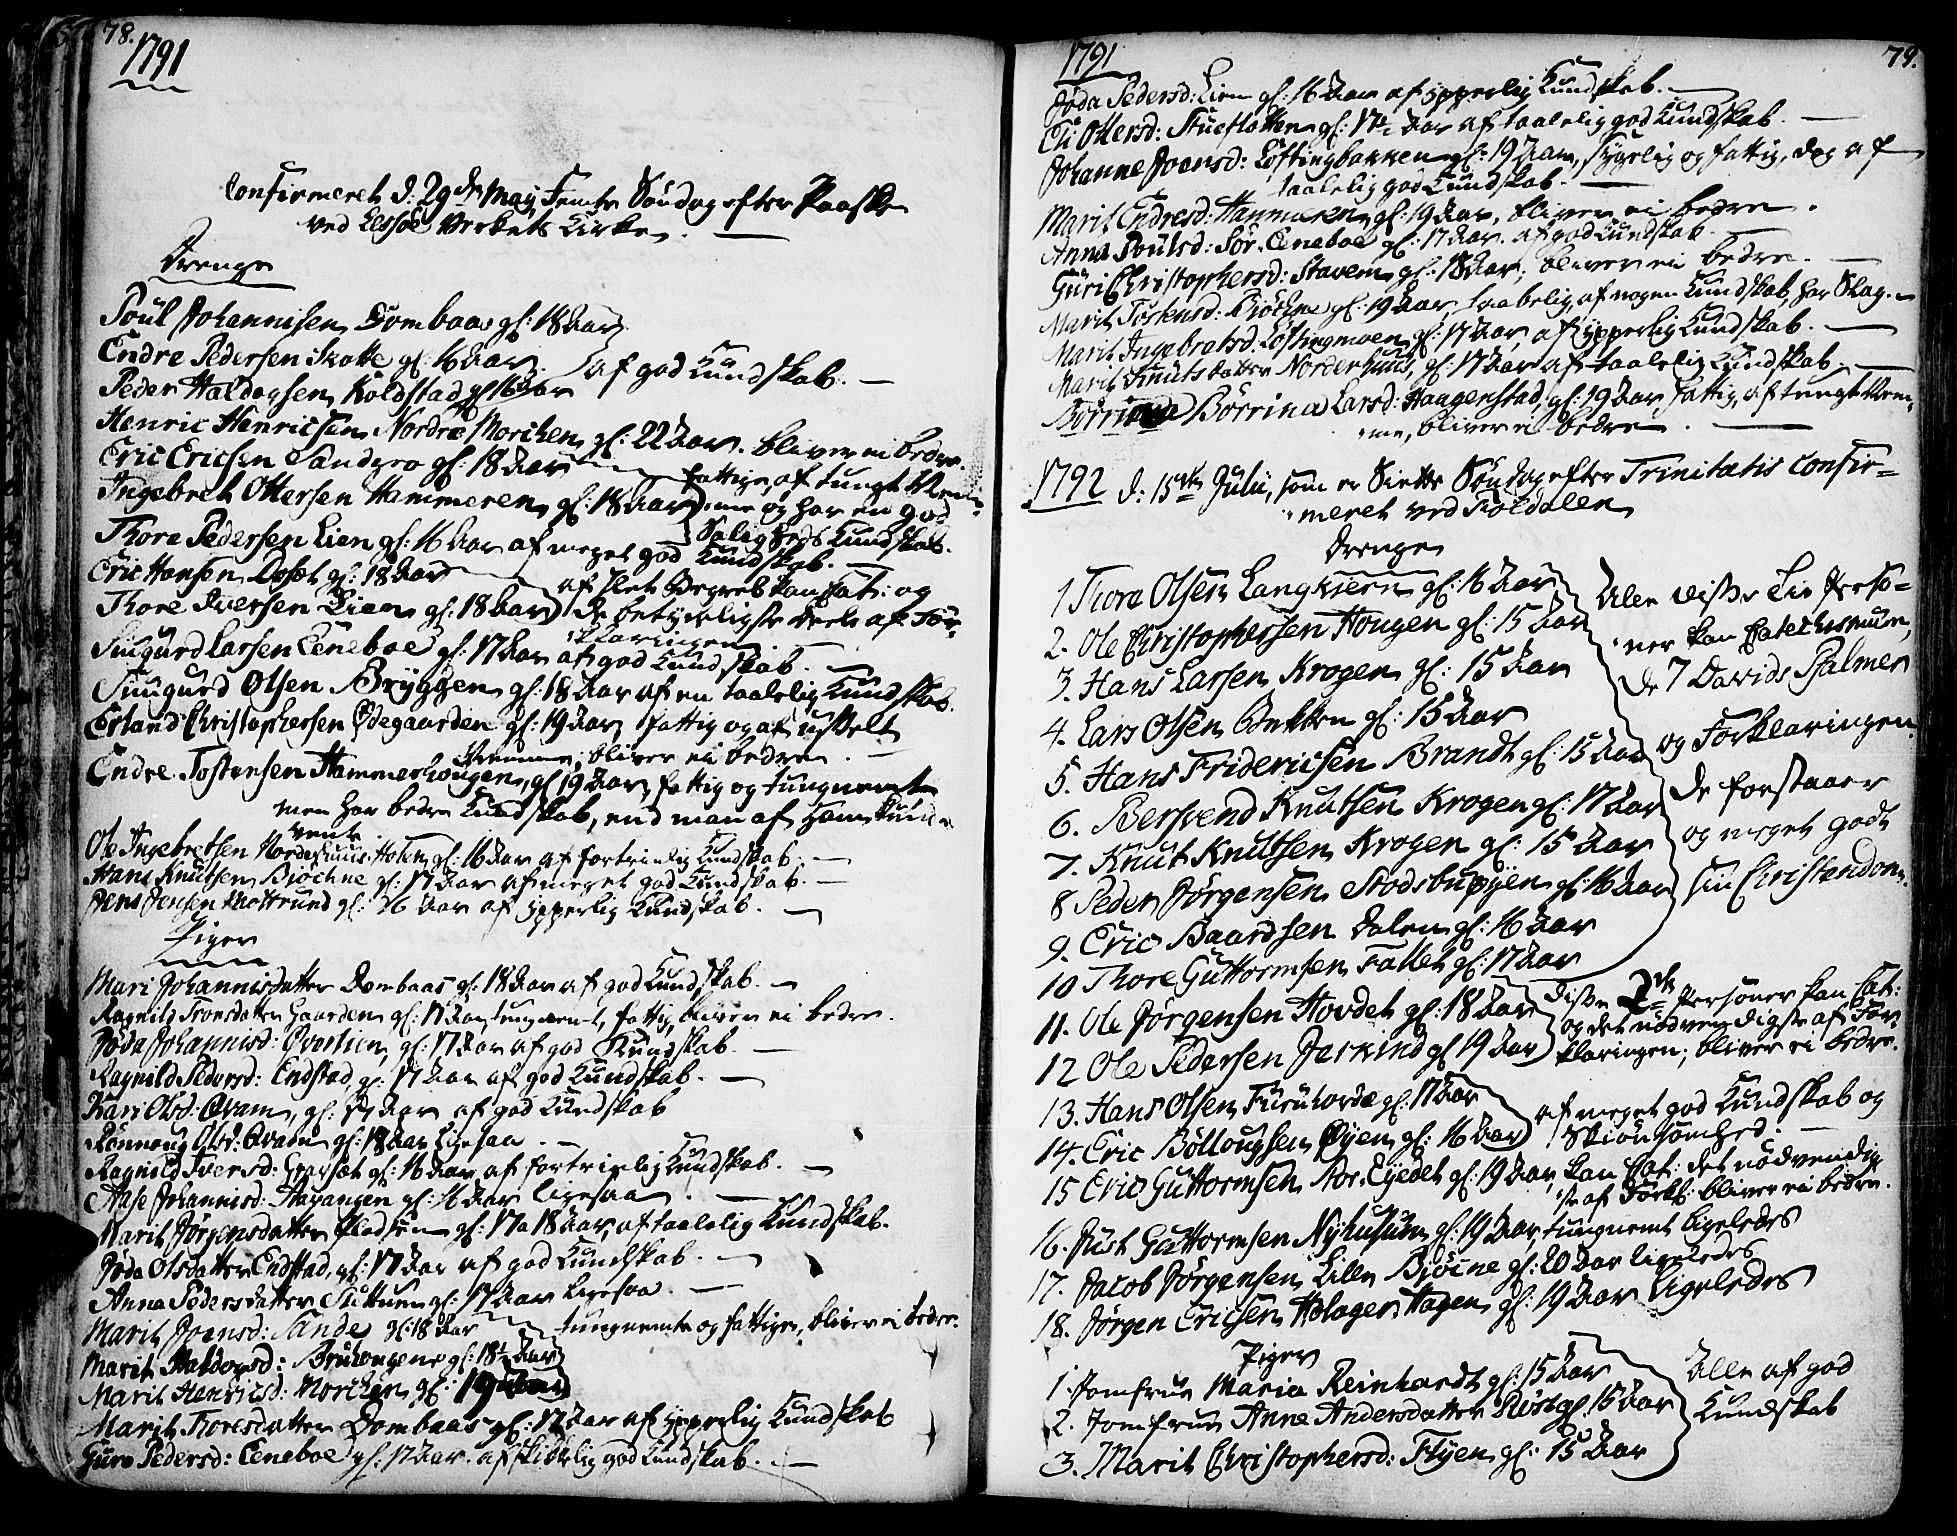 78.
1791
Confirmeret d: 29de May, Femte Søndag efter Paaske
ved Lessøe Verkets Kirke.
Drenge
Poul Johannisen Dombaas gl: 18 Aar
Endre Pedersen Skotte gl: 16 Aar. af god Kundskab.
Peder Haldorsen Koldstad gl 16 Aar
Henric Henricsen Nordre Morchen gl: 22 Aar. bliver ei bedre.
Eric Ericsen Sandgro gl: 18 Aar
Ingebret Ottersen Hammeren gl: 18 Aar fattige, af tungt Nem-
me og har en god
Saligheds Kundskab.
Thore Pedersen Lien gl: 16 Aar af meget god Kundskab.
Eric Hansen Doset gl: 18 Aar af slet Begreb kan Cat: og
Thore Iversen Lien gl: 18 Aar de betydeligste deele af For-
klaringen
Siugurd Larsen Leneboe gl: 17 Aar af god Kundskab.
Siugurd Olsen Bryggen gl: 18 Aar af en taalelig Kundskab.
Erland Christophersen Ødegaarden gl: 19 Aar, fattig og af usselt
Nemme, bliver ei bedre.
Endre Tostensen Hammerhougen, gl 19 Aar, fattig og tungnemt
men har bedre Kundskab, end man af ham kunde
vente
Ole Ingebretsen Norderhuus Holen gl: 16 Aar af fortrinlig Kundskab.
Hans Knutsen Biøchne gl: 17 Aar af meget god Kundskab.
Jens Jensen gl: 16 Aar af ypperlig Kundskab.
Piger
Mari Johannisdatter Dombaas gl: 18 Aar af god Kundskab.
Ragnild Tronsdatter Gaarden gl: 17 Aar, tungnemt, fattig, bliver ei bedre.
Jøda Johannisd: Qvorlien, gl: 17 Aar af god Kundskab.
Ragnild Pedersd: Endstad, gl: 17 Aar af god Kundskab.
Kari Olsd: Qvam, gl: 17 Aar af god Kundskab
Rønnoug Olsd: Qvam gl: 18 Aar Ligesaa.
Ragnild Iversd: gl: 16 Aar af fortrinlig Kundskab.
Aase Johannisd: gl: 16 Aar ligesaa.
Marit Jørgensdatter Pladsen gl: 17 a 18 Aar, af taalelig Kundskab.
Jøda Olsdatter Endstad, gl: 17 Aar af god Kundskab.
Anna Pedersdatter gl: 17 Aar Ligesaa.
Marit Joensd: Sande gl: 18 Aar tungnemte og fattige, bliver ei bedre.
Marit Haldorsd: gl: 18½ Aar
Marit Henricsd: Morchen gl: 19 Aar
Marit Thoresdatter Dombaas gl: 17 Aar af ypperlig Kundskab
Guro Pedersd: Leneboe gl: 17 Aar. af skikkelig god Kundskab.
1791
79.
Jøda Pedersd: Lien gl: 16 Aar af ypperlig Kundskab.
Eli Ottersd: Stueflotten gl: 17½ Aar af taalelig god Kundskab.
Johanne Joensd: Loftingbakken gl: 19 Aar, sygelig og fattig, dog af
taalelig god Kundskab.
Marit Endresd: Hammeren gl: 19 Aar, bliver ei bedre.
Anna Poulsd: Sør. Leneboe gl: 17 Aar. af god Kundskab.
Guri Christophersd: Stavem gl: 18 Aar, bliver ei bedre.
Marit Tostensd: Biøchne gl: 19 Aar, taabelig, af nogen Kundskab, har Slag.
Marit Ingebretsd: Loftingmoen gl: 17 Aar, af ypperlig Kundskab.
Marit Knutsdatter Norderhuus, gl: 17 Aar af taalelig Kundskab.
Børrina Børrina Larsd: Haagenstad, gl: 19 Aar, fattig, af tungt Nem-
me, bliver ei bedre.
1792 d: 15de Julii, som er Siette Søndag efter Trinitatis Confir-
meret ved Foldalen
Drenge
1 Thore Olsen Langkiern gl: 16 Aar Alle disse Tie Perso-
2. Ole Christophersen Hougen gl: 15 Aar ner kan Catechismum,
3. Hans Larsen Krogen gl: 15 Aar de 7 Davids Psalmer
4. Lars Olsen Bekken gl: 15 Aar og Forklaringen.
5. Hans Fridericsen Brandt gl: 15 Aar de forstaaer
6. Bersvend Knutsen Krogen gl: 17 Aar og meget godt
7. Knut Knutsen Krogen gl: 15 Aar sin Christendom.
8 Peder Jørgensen Stodsbuøyen gl: 16 Aar
9. Eric Baardsen Dalen gl: 16 Aar
10 Thore Guttormsen Fallet gl: 17 Aar
11. Ole Jørgensen Hovdet gl: 18 Aar disse 2de Personer kan Cat:
og det nødvendigste af For
12 Ole Pedersen Jerkind gl 19 Aar klaringen; bliver ei bedre.
13. Hans Olsen Furuhovde gl: 17 Aar af meget god Kundskab og
14. Eric Bøllougsen Øyen gl: 16 Aar Skiønsomhed.
15 Eric Guttormsen Nor. Eyedet gl: 19 Aar, kan Cat: det nødvendig
ste af Forkl: bliver ei bedre.
16. Just Guttormsen Nyhusum gl: 19 Aar, tungnemt ligeledes
17. Jacob Jørgensen Lille Biøcne gl: 20 Aar ligeledes
18. Jørgen Ericsen Holager Hagen gl: 19 Aar Ligeledes
Piger
1. Jomfrue Maria Reinhardt gl: 15 Aar Alle af god
2. Jomfrue Anne Andersdatter Røst gl: 15 Aar Kundskab
3. Marit Christophersd: Flyen gl: 15 Aar